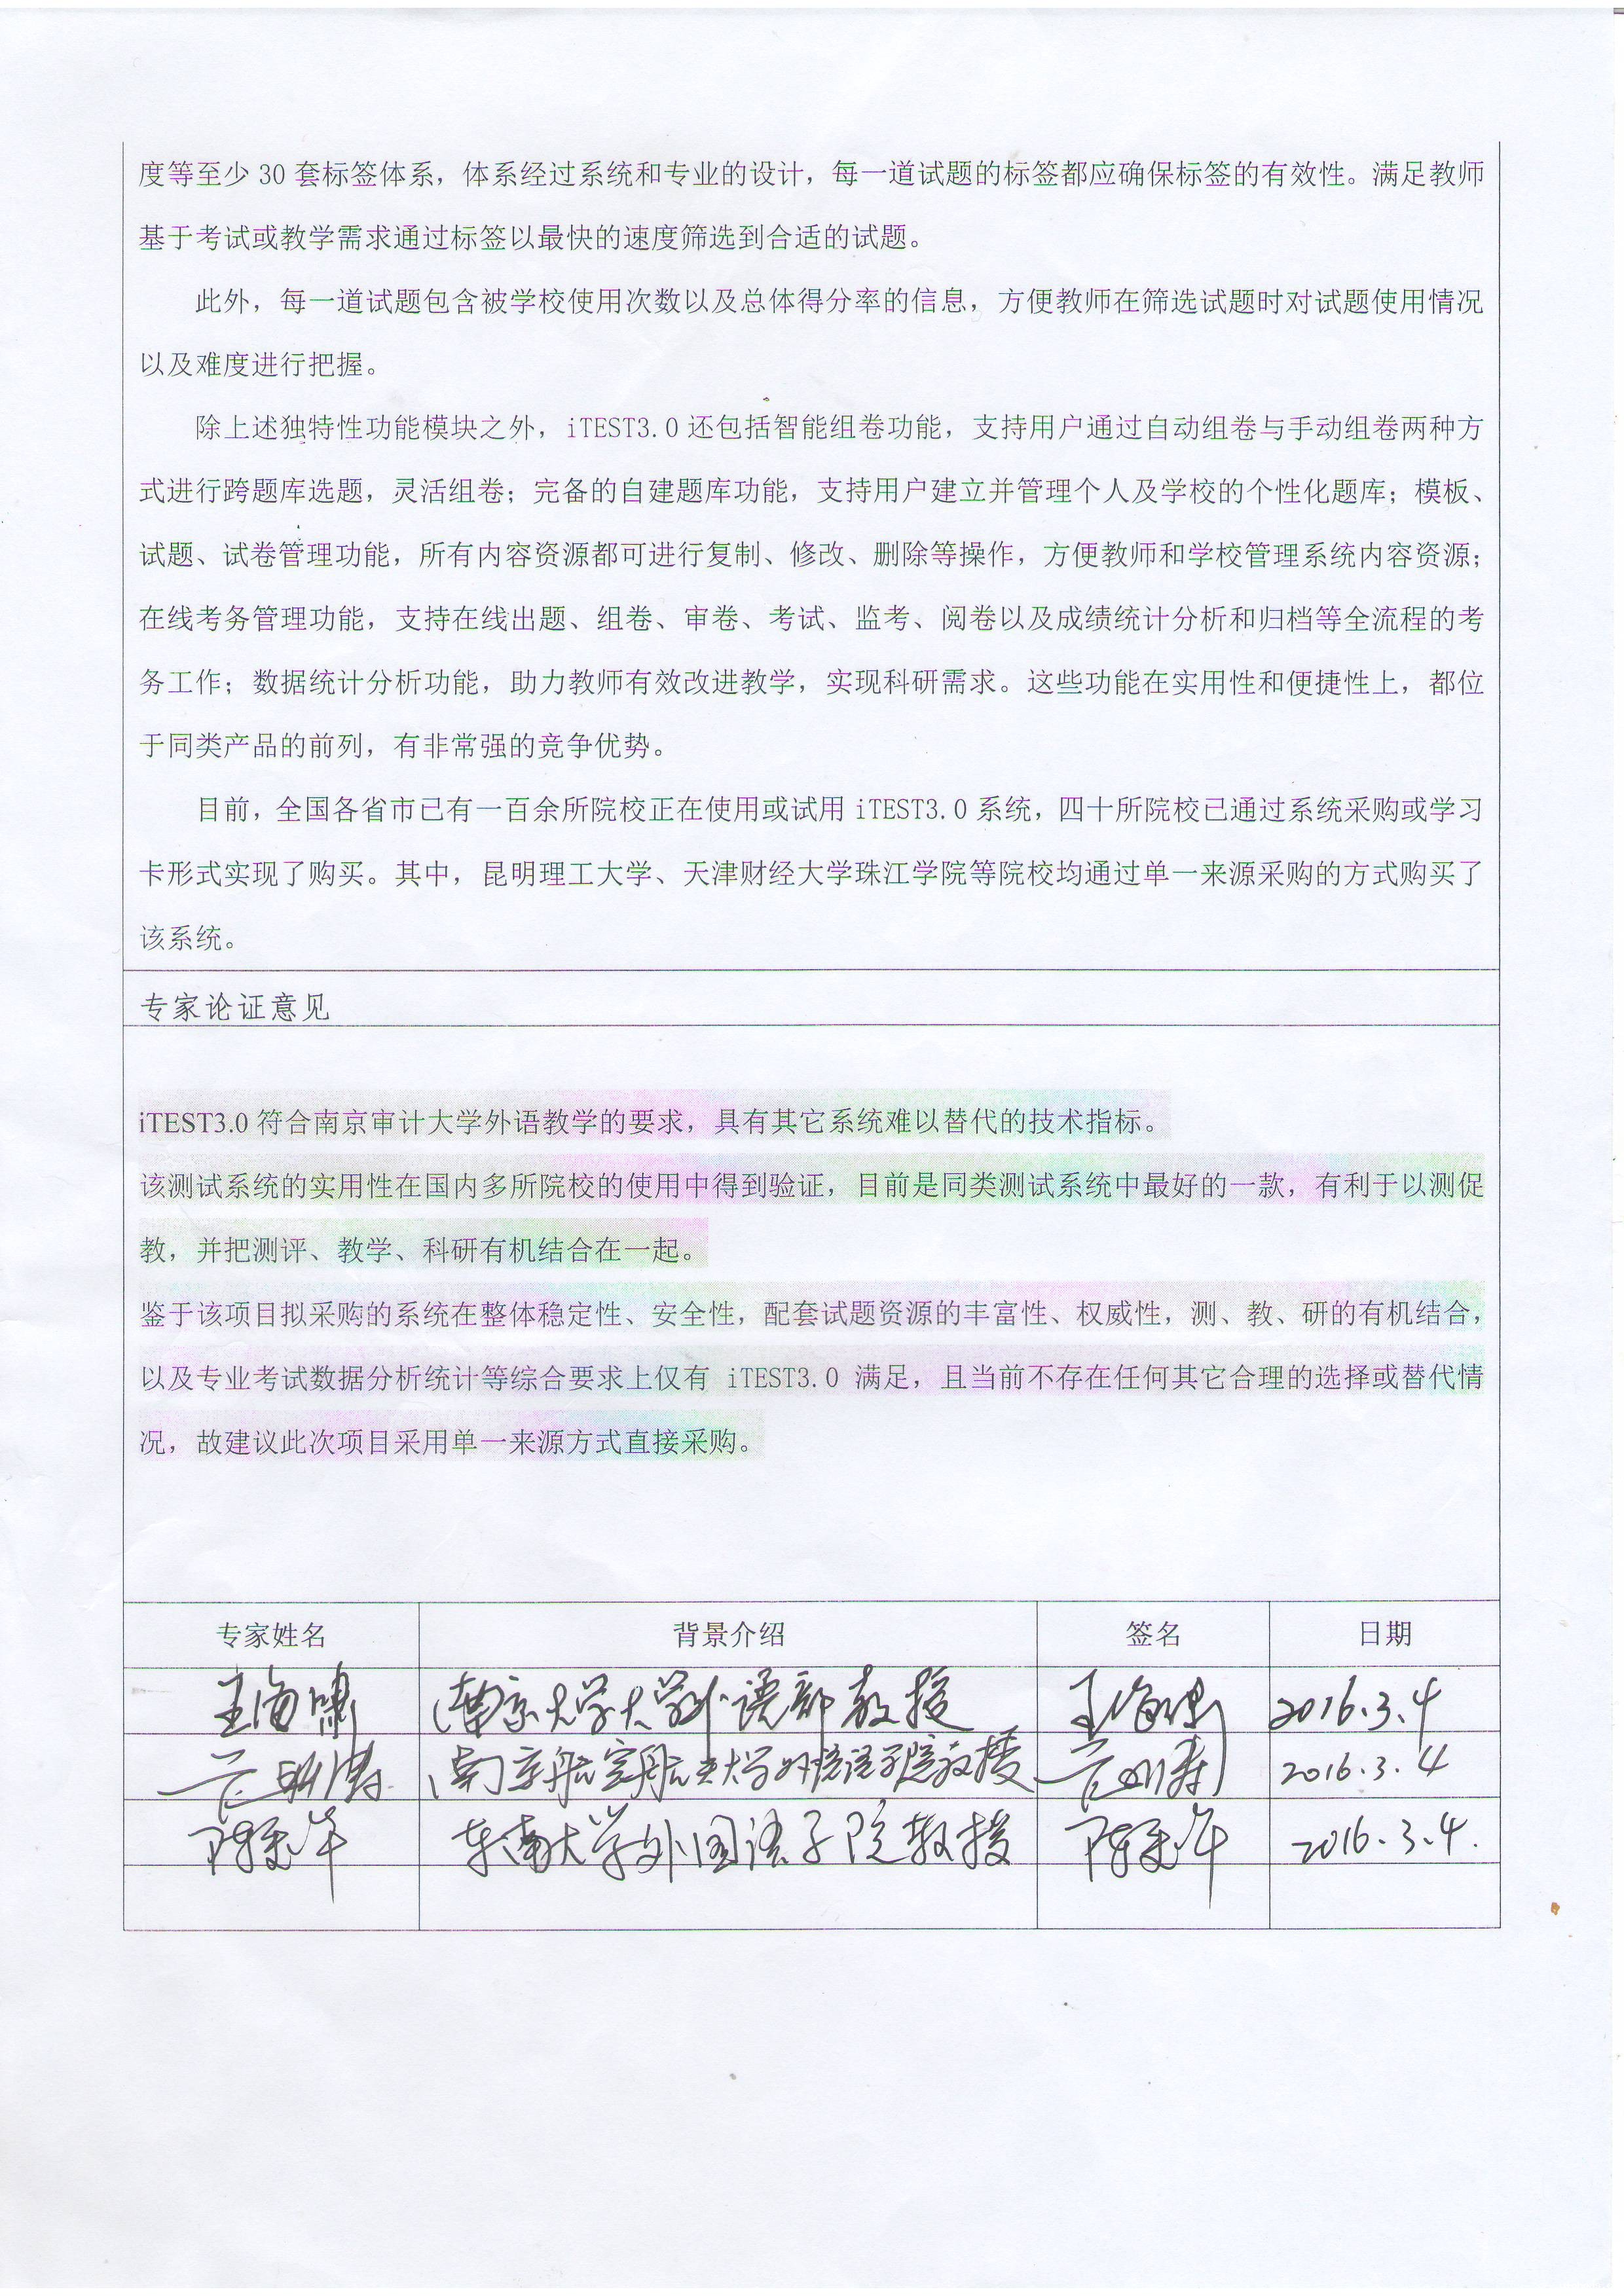 度等至少 30 套标签体系，体系经过系统和专业的设计，每一道试题的标签都应确保标签的有效性。满足教师
基于考试或教学需求通过标签以最快的速度筛选到合适的试题。
此外，每一道试题包含被学校使用次数以及总体得分率的信息，方便教师在筛选试题时对试题使用情况
以及难度进行把握。
除上述独特性功能模块之外，iTEST3.0 还包括智能组卷功能，支持用户通过自动组卷与手动组卷两种方
式进行跨题库选题，灵活组卷；完备的自建题库功能，支持用户建立并管理个人及学校的个性化题库；模板、
试题、试卷管理功能，所有内容资源都可进行复制、修改、删除等操作，方便教师和学校管理系统内容资源；
在线考务管理功能，支持在线出题、组卷、审卷、考试、监考、阅卷以及成绩统计分析和归档等全流程的考
务工作；数据统计分析功能，助力教师有效改进教学，实现科研需求。这些功能在实用性和便捷性上，都位
于同类产品的前列，有非常强的竞争优势。
目前，全国各省市已有一百余所院校正在使用或试用 iTEST3.0 系统，四十所院校已通过系统采购或学习
卡形式实现了购买。其中，昆明理工大学、天津财经大学珠江学院等院校均通过单一来源采购的方式购买了
该系统。
专家论证意见
iTEST3.0 符合南京审计大学外语教学的要求，具有其它系统难以替代的技术指标。
该测试系统的实用性在国内多所院校的使用中得到验证，目前是同类测试系统中最好的一款，有利于以测促
教，并把测评、教学、科研有机结合在一起。
鉴于该项目拟采购的系统在整体稳定性、安全性，配套试题资源的丰富性、权威性，测、教、研的有机结合，
以及专业考试数据分析统计等综合要求上仅有 iTEST3.0 满足，且当前不存在任何其它合理的选择或替代情
况，故建议此次项目采用单一来源方式直接采购。
专家姓名 背景介绍 签名 日期
王海啸 南京大学大学外语部教授 王海啸 2016.3.4
南京航空航天大学外院教授 2016.3.4
东南大学外国语学院教授 2016.3.4.